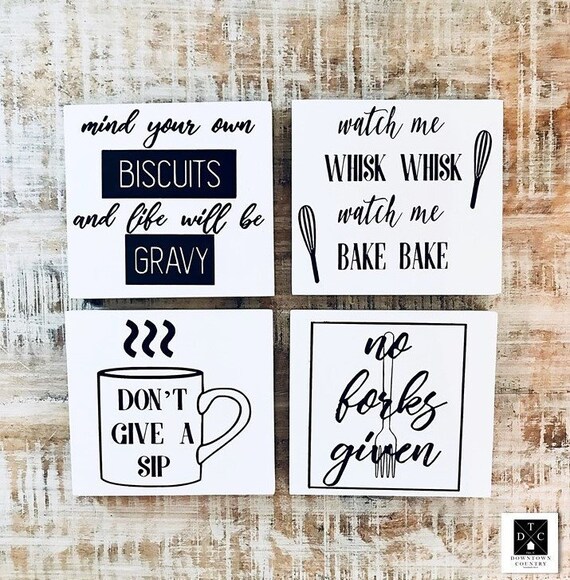 mind your own
BISCUITS
and life will be
GRAVY
watch me
WHISK WHISK
watch me
BAKE BAKE
DON'T
GIVE A
SIP
no
forks
given
T
D C
DOWNTOWN
COUNTRY